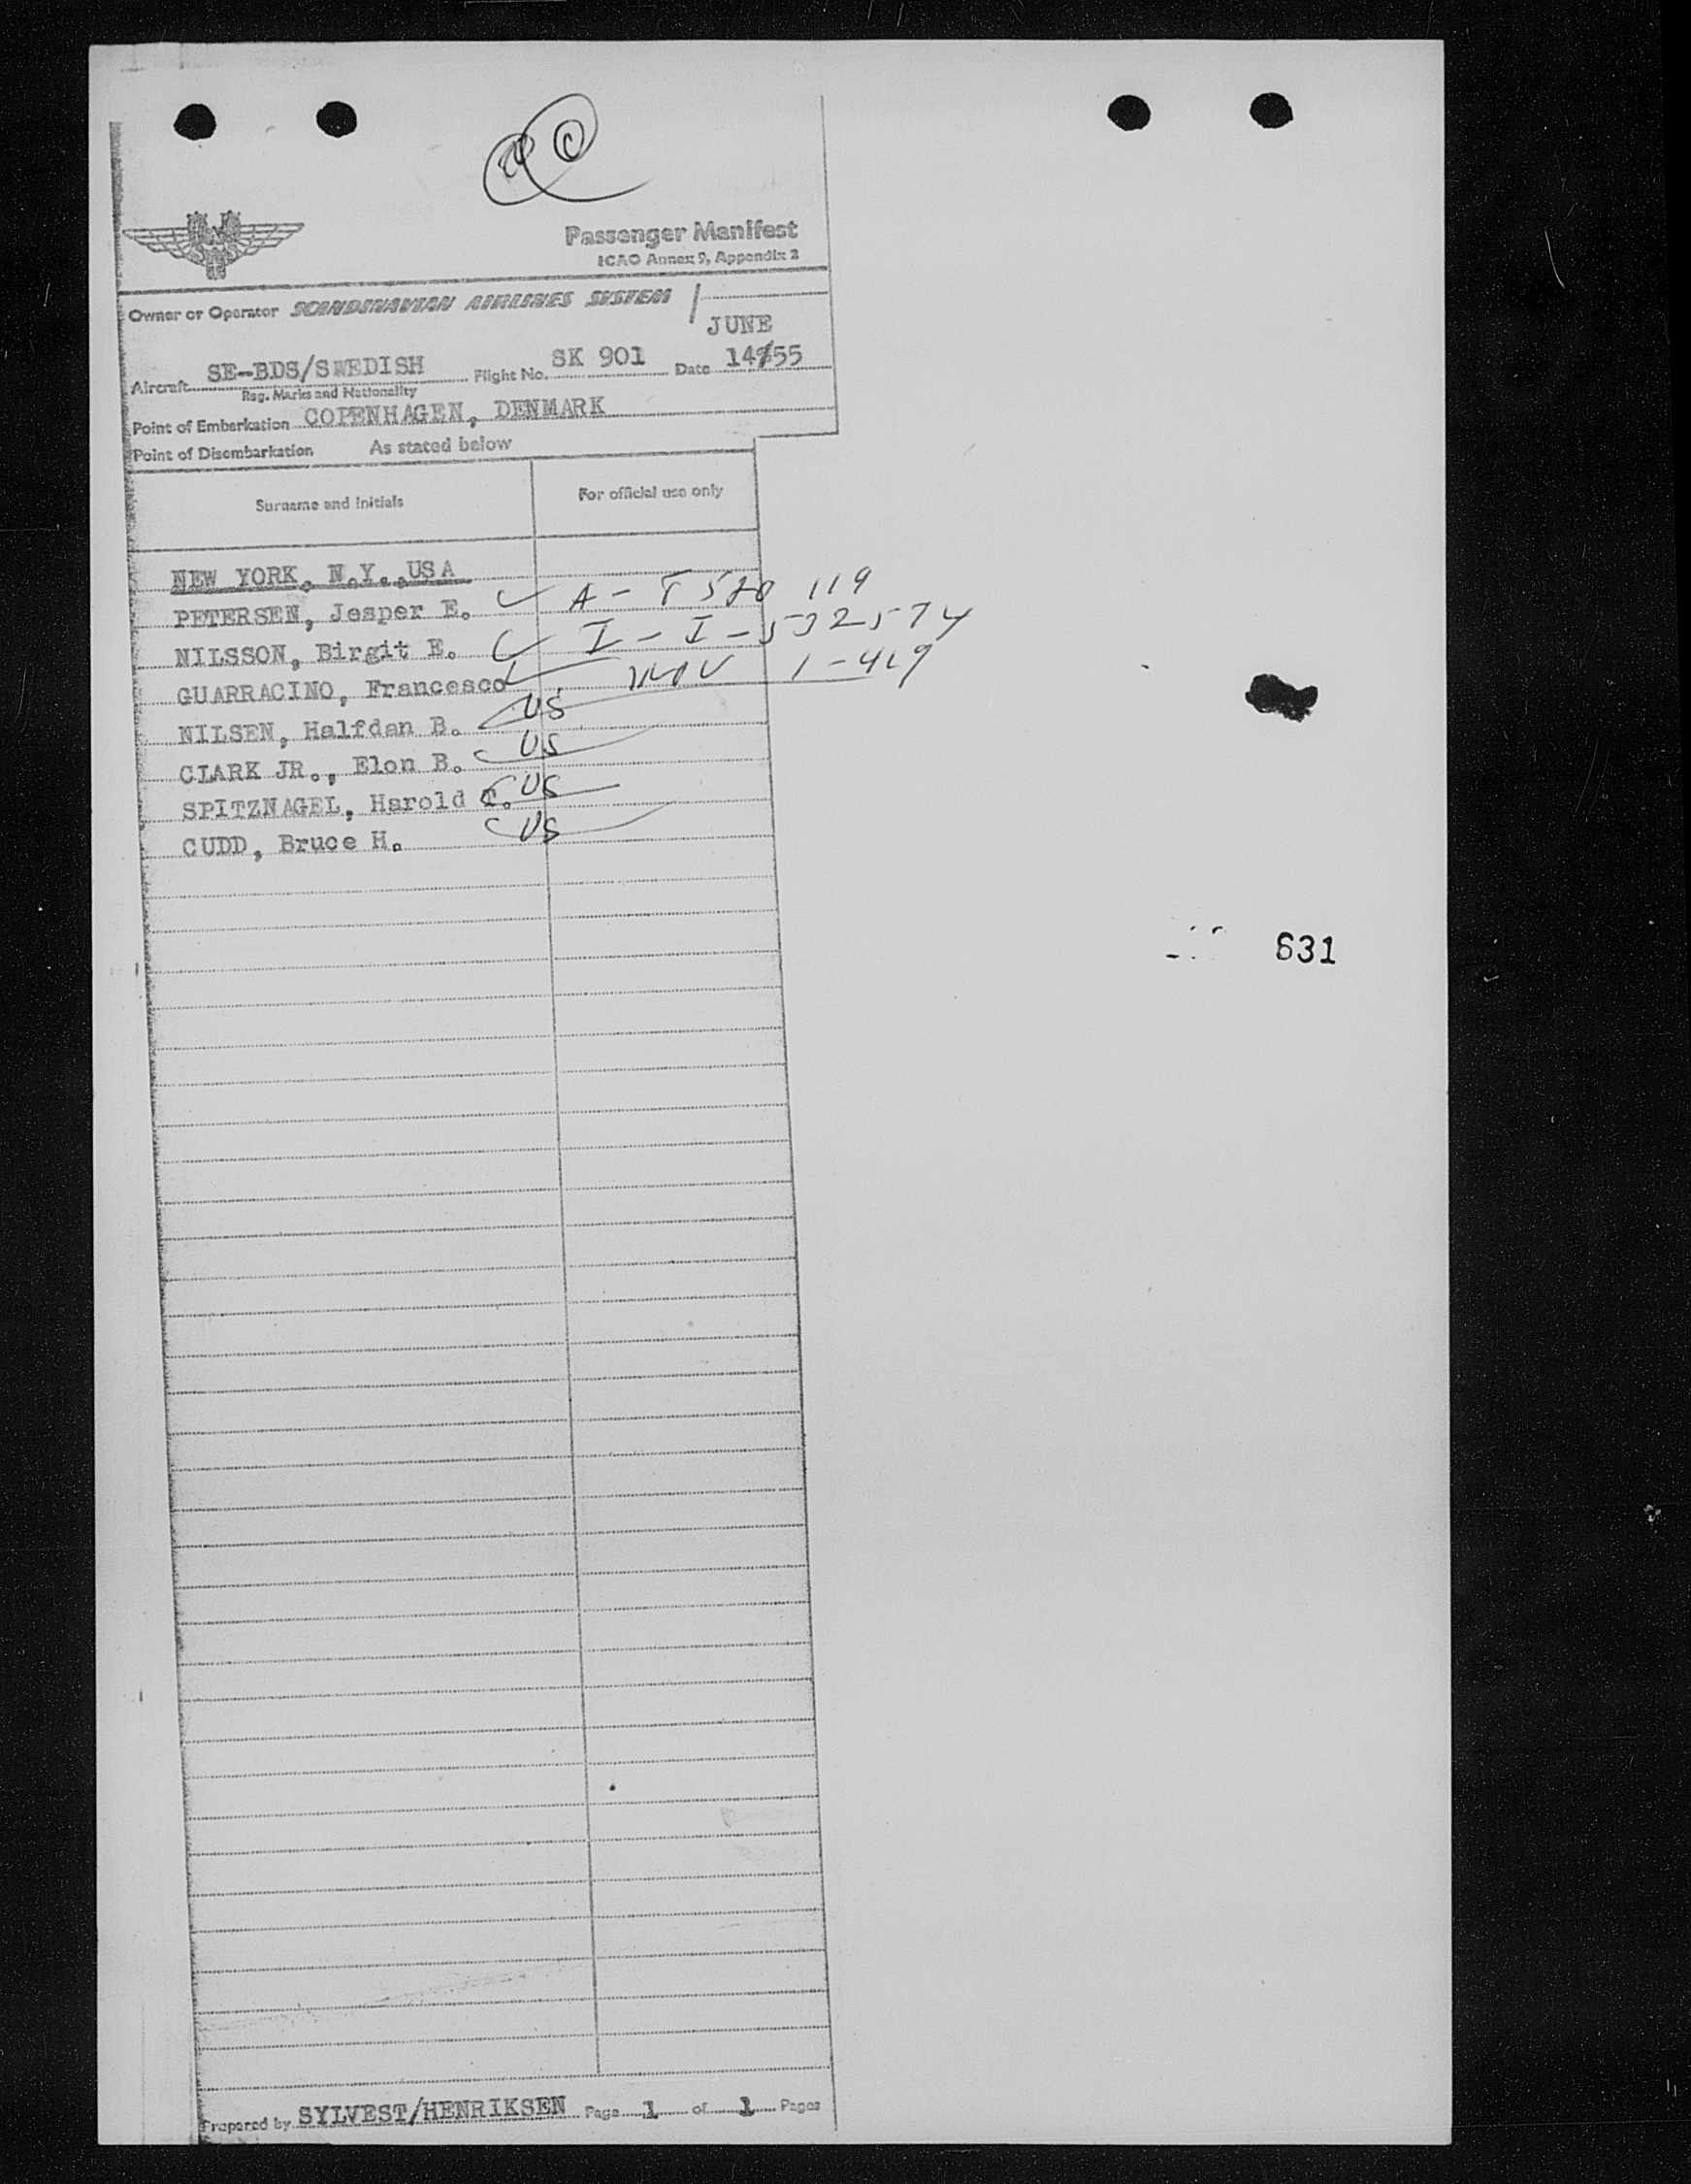 Passenger Manifest
ICAO Annex 9, Appendix 2
Owner or Operator SCANDINAVIAN AIRLINES SYSTEM
JUNE
Aircraft SE-BDS/SWEDISH Flight No. SK 901 Date 14/55
Reg. Marks and Nationality
Point of Embarkation COPENHAGEN, DENMARK
Point of Disembarkation As stated below
Surname and initials For official use only
NEW YORK, N.Y., USA
PETERSEN, Jesper E. A-8520 119
NILSSON, Birgit E. I-I-532574
GUARRACINO, Francesco 1-419
NILSEN, Halfdan B. US
CLARK JR., Elon B. US
SPITZNAGEL, Harold T. US
CUDD, Bruce H. US
631
Prepared by SYLVEST/HENRIKSEN Page 1 of 1 Pages